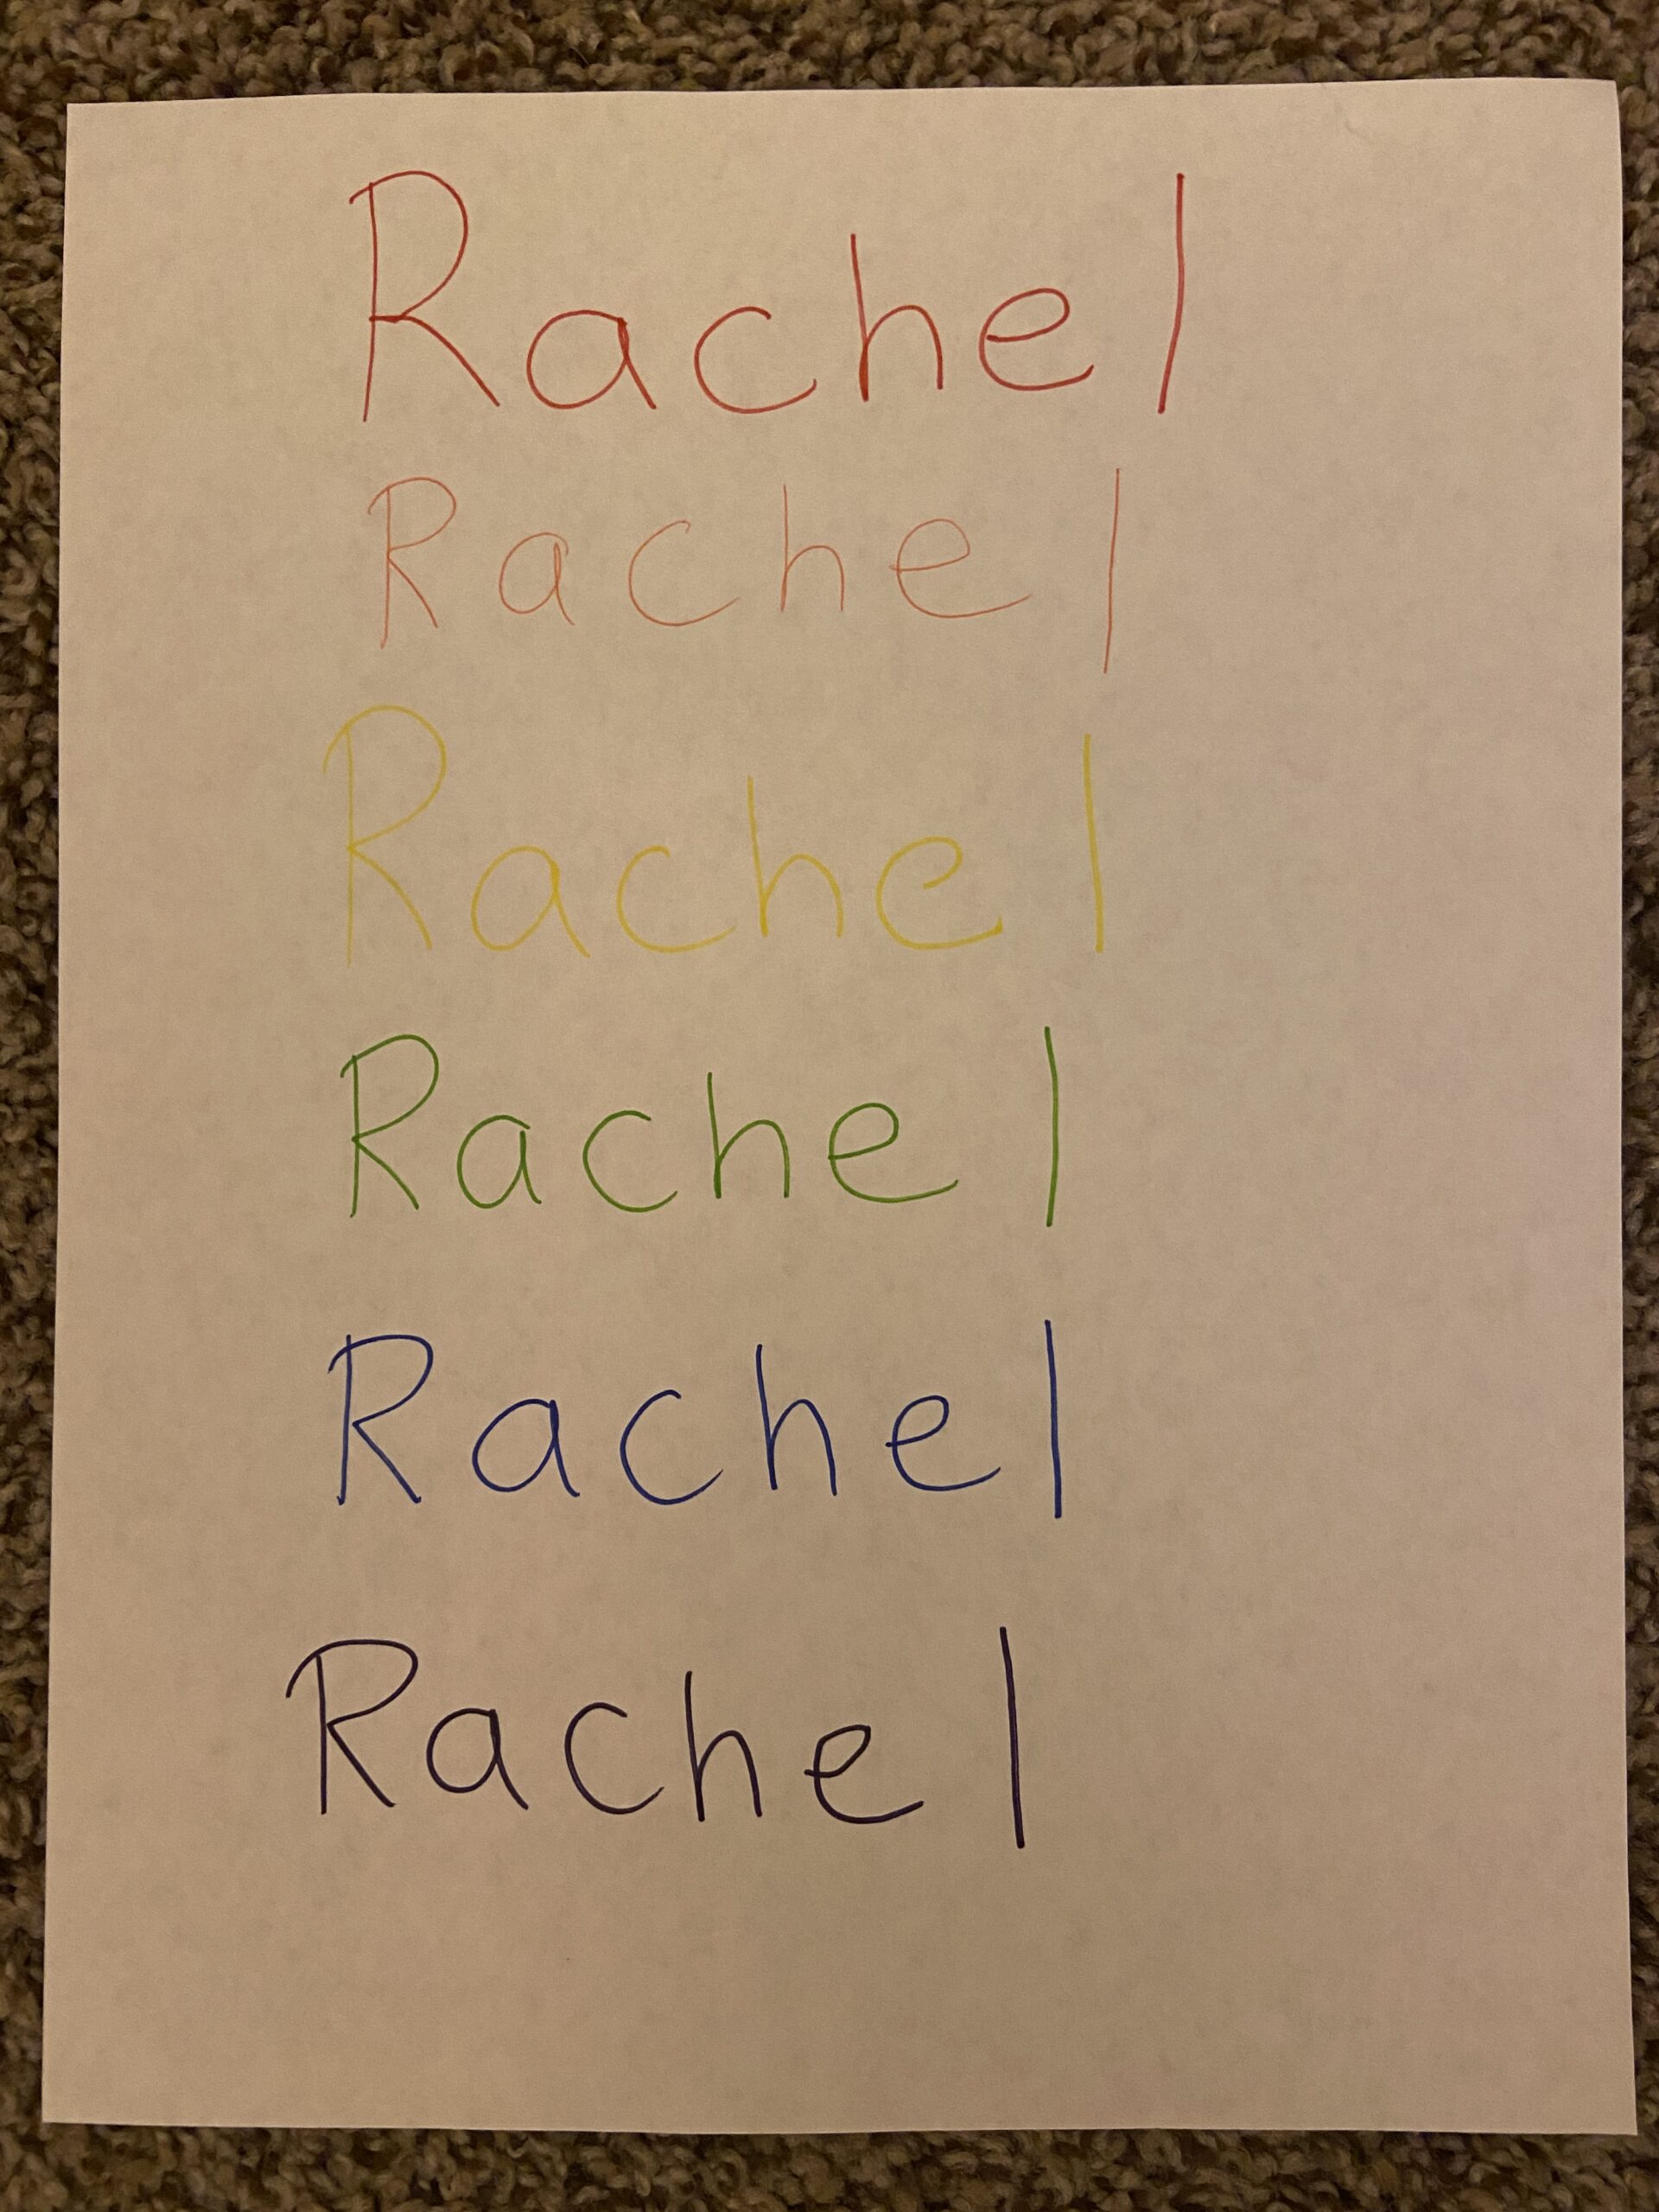 Rachel
Rachel
Rachel
Rachel
Rachel
Rachel